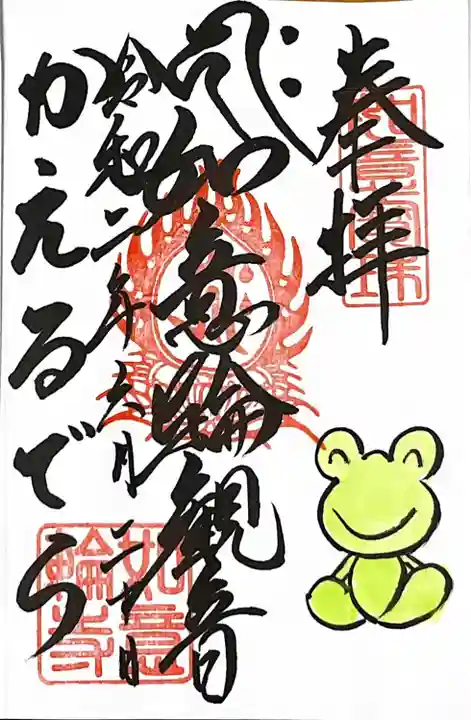 奉拝
如意寶珠
如意輪観音
令和二年六月二十日
かえるでら
如意輪寺